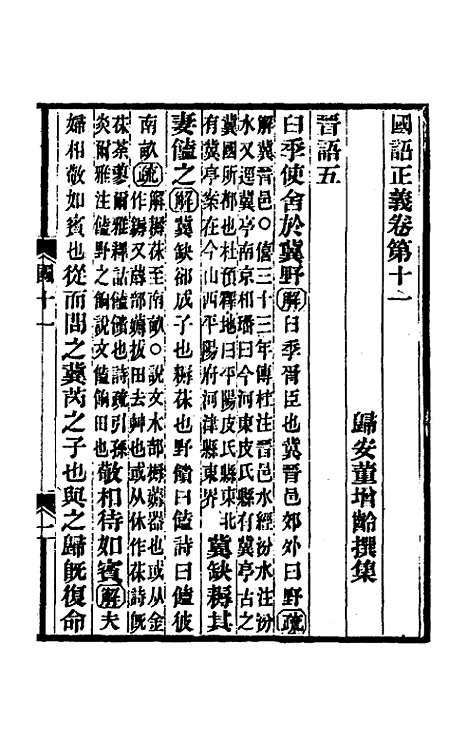 國語正義卷第十一
歸安董增齡撰集
晉語五
臼季使舍於冀野解臼季晉臣也冀晉邑郊外曰野疏
解冀晉邑○僖三十三年傳杜注晉邑水經汾水注汾
水又逕冀亭南京相璠曰今河東皮氏縣有冀亭古之
冀國所都也杜預釋地曰平陽皮氏縣東北
有冀亭案在今山西平陽府河津縣東界
冀缺耨其
妻饁之解冀缺郤成子也耨茠也野饋曰饁詩曰饁彼
南畝疏
解耨茠至南畝○說文木部槈薅器也或从金
作鎒又蓐部薅拔田去艸也或从休作茠詩旣
茠荼蓼爾雅釋詁饁饋也詩疏引孫
炎爾雅注饁野之餉說文饁餉田也
敬相待如賓解夫
婦相敬如賓也從而問之冀芮之子也與之歸旣復命
國十一
一